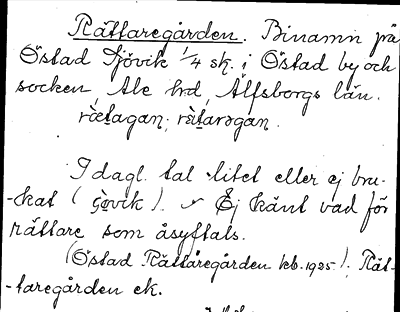 Rättaregården. Binamn på
Östad Sjövik 1/4 sk. i Östad by och
socken Ale hd, Älfsborgs län.
rætagan; rætarəgan.
I dagl. tal litet eller ej bru-
-kat (ʂøvik). Ej känt vad för
rättare som åsyftats.
(Östad Rättaregården kb. 1925.); Rät-
-taregården ek.